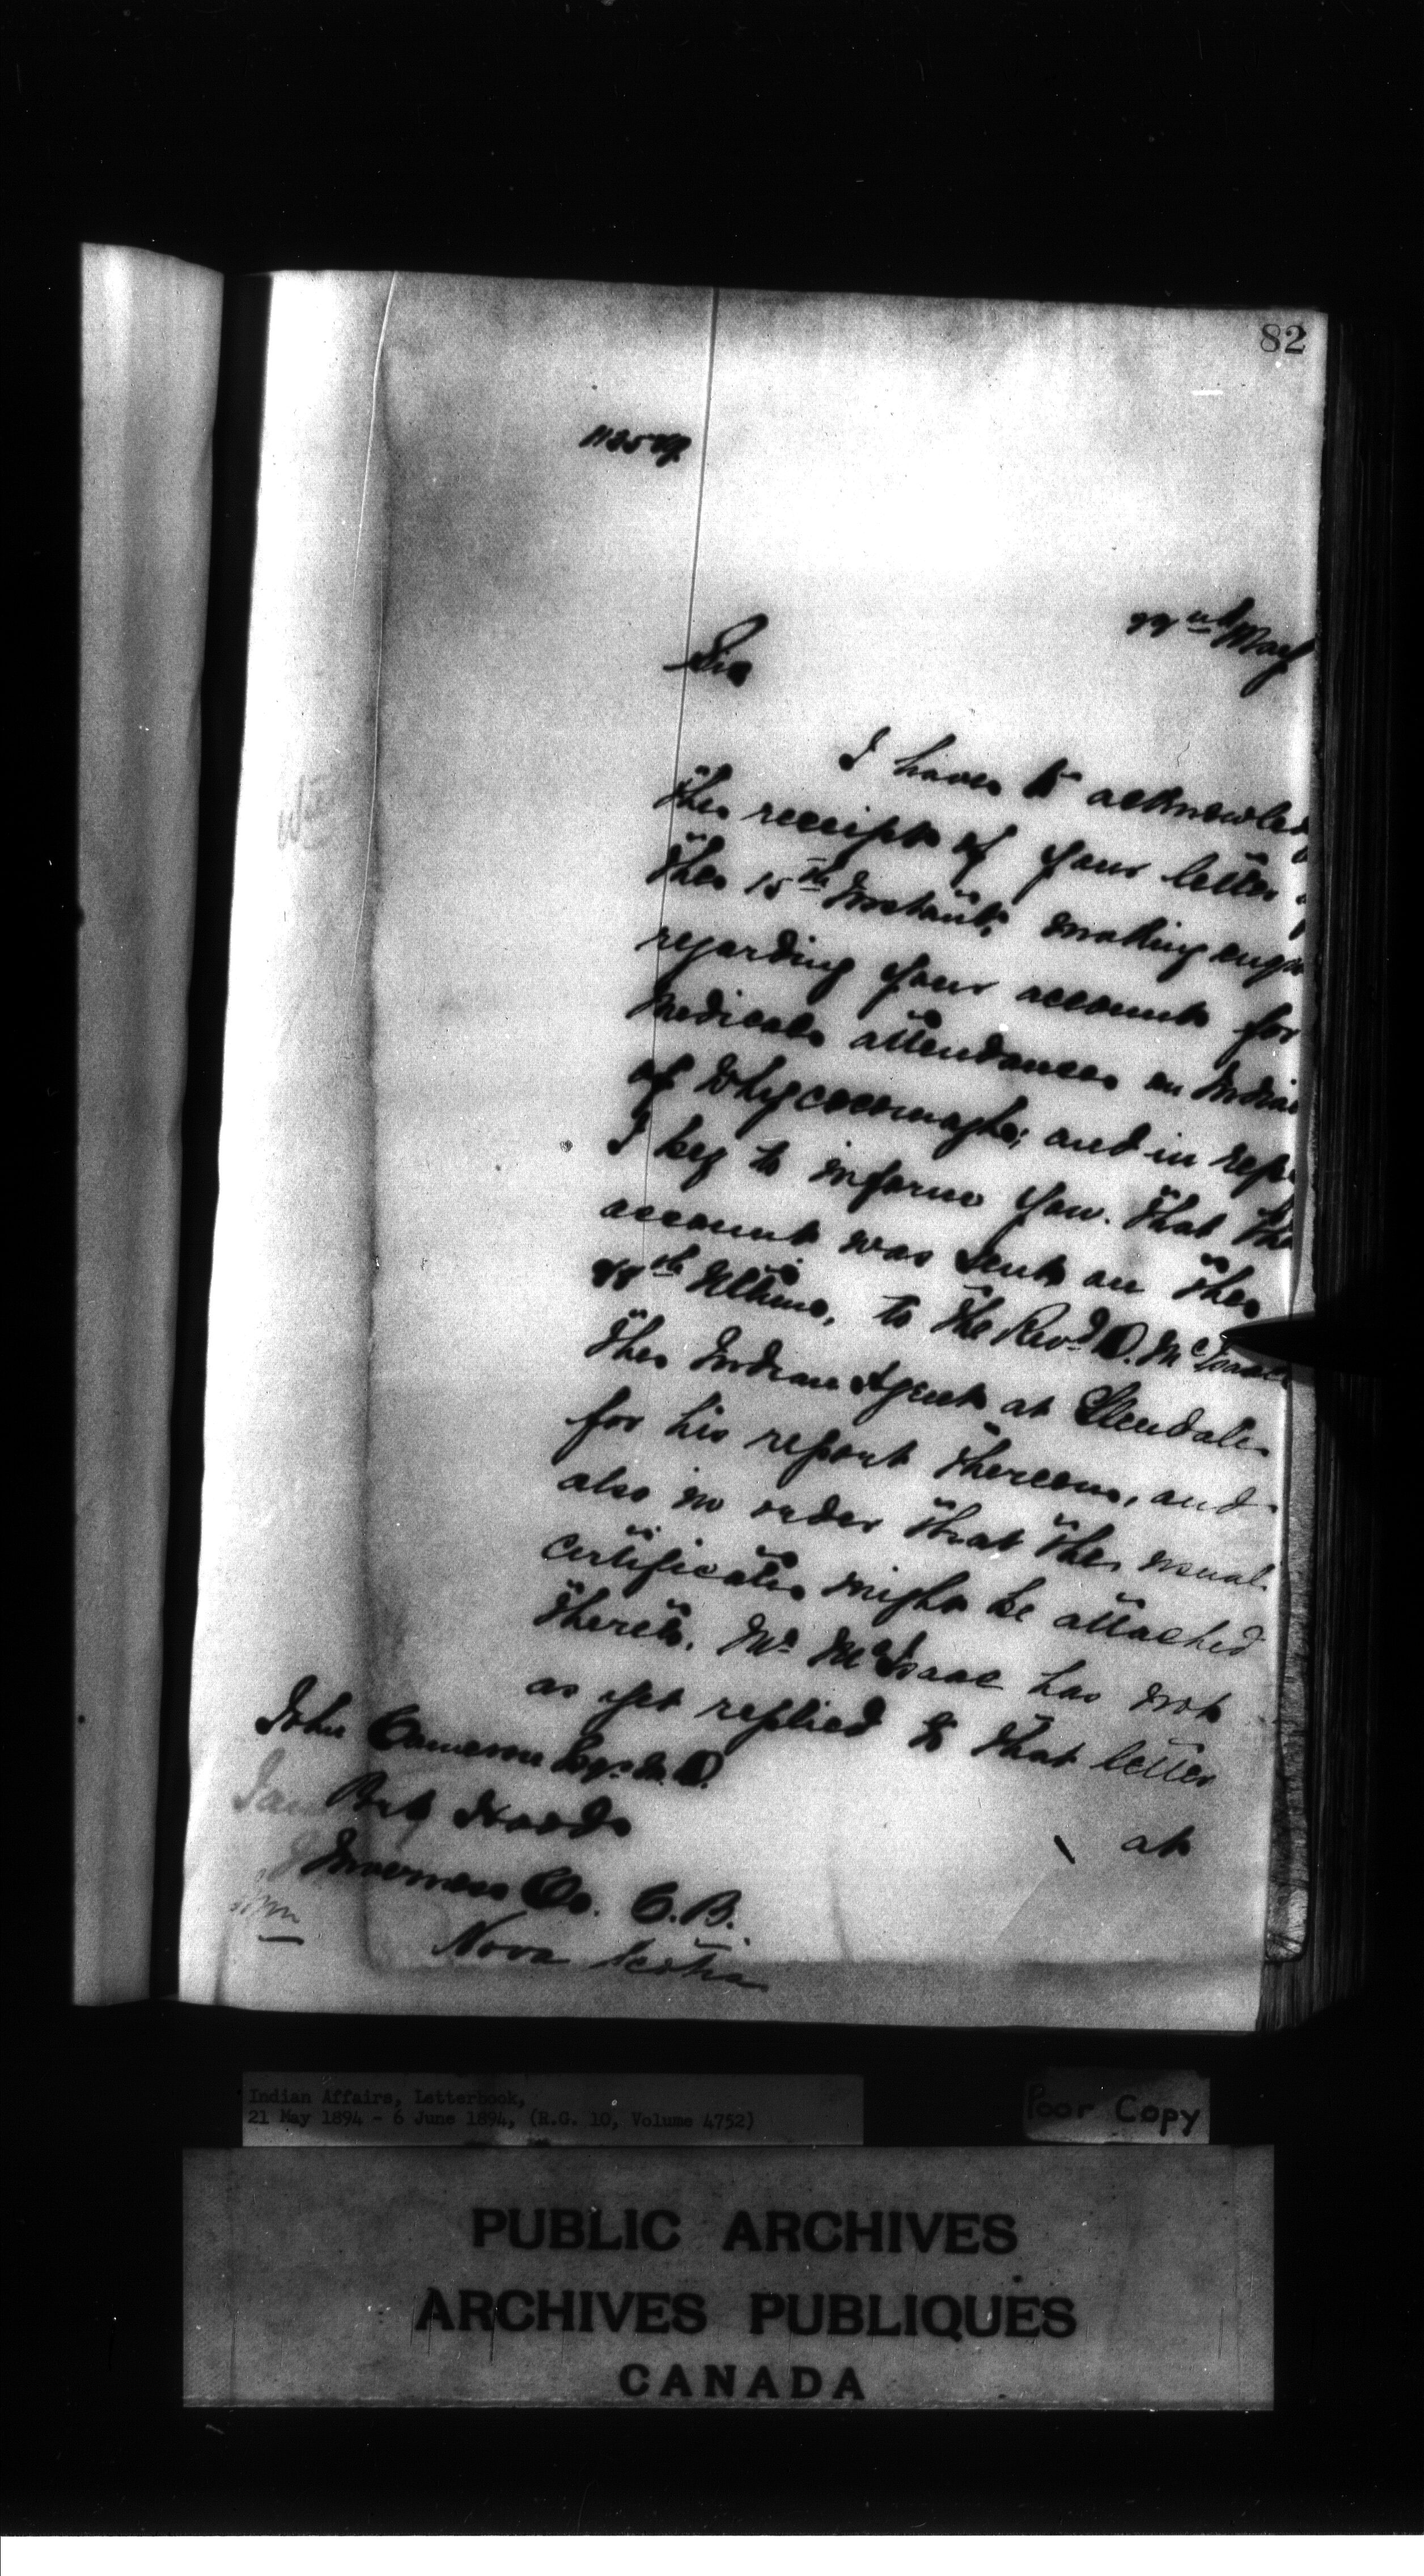 82
22nd May
Sir
I have to acknowled
the receipt of your letter
the 15th Instant, making enqu
regarding your account for
medical attendance on Indian
of Whycocomagh; and in rep
I beg to inform you that the
account was sent on the
Ultimo, to the Revd D. McIsaac
the Indian Agent at Glendale
for his report thereon, and
also in order that the usual
certificate might be attached
thereto. Mr McIsaac has not
as yet replied to that letter
at
John Cameron Esqr M.D.
Port Hood
Inverness Co. C.B.
Nova Scotia
Indian Affairs, Letterbook,
21 May 1894 - 6 June 1894, (R.G. 10, Volume 4752)
Poor Copy
PUBLIC ARCHIVES
ARCHIVES PUBLIQUES
CANADA